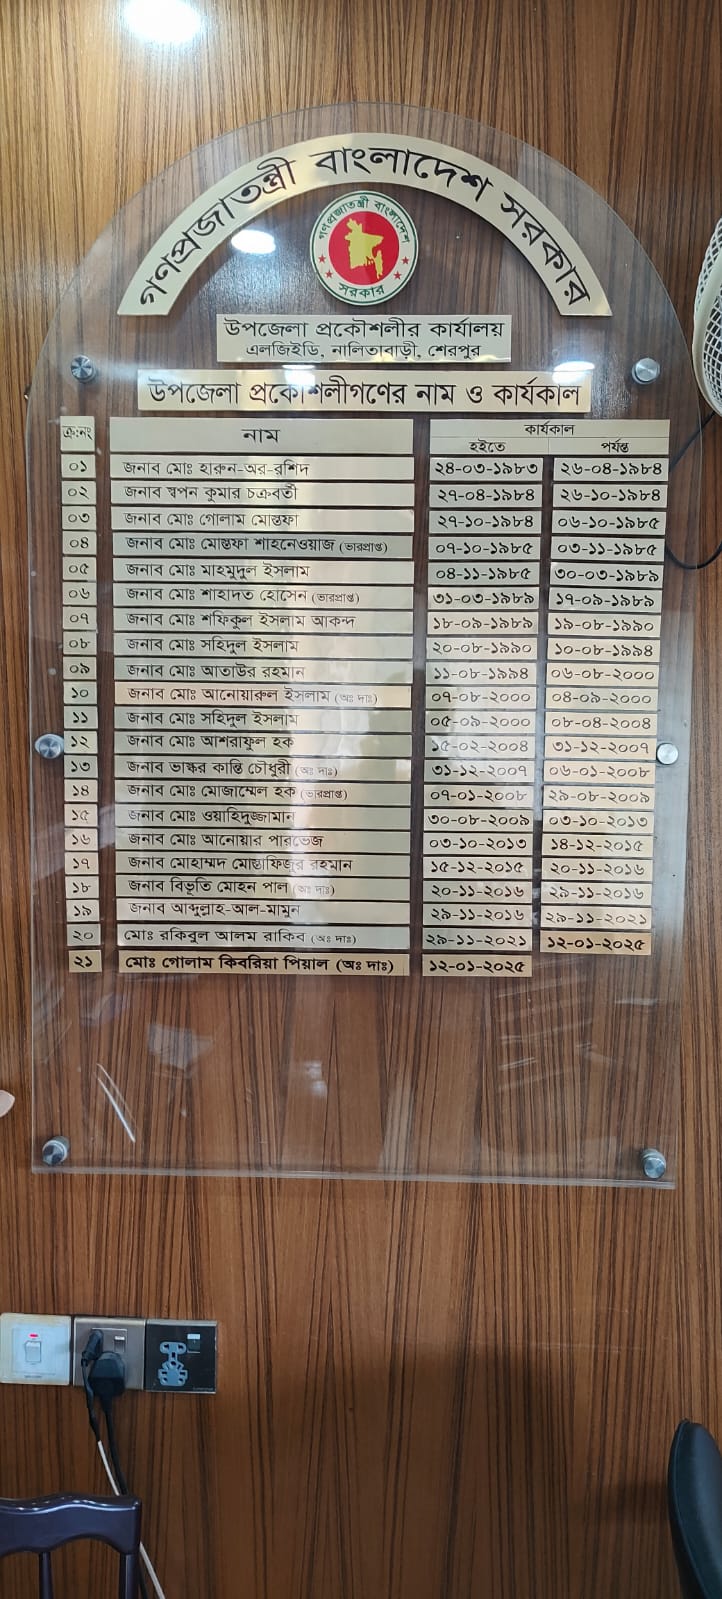 গণপ্রজাতন্ত্রী বাংলাদেশ সরকার
গণপ্রজাতন্ত্রী বাংলাদেশ
সরকার
উপজেলা প্রকৌশলীর কার্যালয়
এলজিইডি, নালিতাবাড়ী, শেরপুর
উপজেলা প্রকৌশলীগণের নাম ও কার্যকাল
ক্র:নং নাম কার্যকাল
হইতে পর্যন্ত
০১ জনাব মোঃ হারুন-অর-রশিদ ২৪-০৩-১৯৮৩ ২৬-০৪-১৯৮৪
০২ জনাব স্বপন কুমার চক্রবর্তী ২৭-০৪-১৯৮৪ ২৬-১০-১৯৮৪
০৩ জনাব মোঃ গোলাম মোস্তফা ২৭-১০-১৯৮৪ ০৬-১০-১৯৮৫
০৪ জনাব মোঃ মোস্তফা শাহনেওয়াজ (ভারপ্রাপ্ত) ০৭-১০-১৯৮৫ ০৩-১১-১৯৮৫
০৫ জনাব মোঃ মাহমুদুল ইসলাম ০৪-১১-১৯৮৫ ৩০-০৩-১৯৮৯
০৬ জনাব মোঃ শাহাদত হোসেন (ভারপ্রাপ্ত) ৩১-০৩-১৯৮৯ ১৭-০৯-১৯৮৯
০৭ জনাব মোঃ শফিকুল ইসলাম আকন্দ ১৮-০৯-১৯৮৯ ১৯-০৮-১৯৯০
০৮ জনাব মোঃ সহিদুল ইসলাম ২০-০৮-১৯৯০ ১০-০৮-১৯৯৪
০৯ জনাব মোঃ আতাউর রহমান ১১-০৮-১৯৯৪ ০৬-০৮-২০০০
১০ জনাব মোঃ আনোয়ারুল ইসলাম (অঃ দাঃ) ০৭-০৮-২০০০ ০৪-০৯-২০০০
১১ জনাব মোঃ সহিদুল ইসলাম ০৫-০৯-২০০০ ০৮-০৪-২০০৪
১২ জনাব মোঃ আশরাফুল হক ১৫-০২-২০০৪ ৩১-১২-২০০৭
১৩ জনাব ভাস্কর কান্তি চৌধুরী (অঃ দাঃ) ৩১-১২-২০০৭ ০৬-০১-২০০৮
১৪ জনাব মোঃ মোজাম্মেল হক (ভারপ্রাপ্ত) ০৭-০১-২০০৮ ২৯-০৮-২০০৯
১৫ জনাব মোঃ ওয়াহিদুজ্জামান ৩০-০৮-২০০৯ ০৩-১০-২০১৩
১৬ জনাব মোঃ আনোয়ার পারভেজ ০৩-১০-২০১৩ ১৪-১২-২০১৫
১৭ জনাব মোহাম্মদ মোস্তাফিজুর রহমান ১৫-১২-২০১৫ ২০-১১-২০১৬
১৮ জনাব বিভূতি মোহন পাল (অঃ দাঃ) ২০-১১-২০১৬ ২৯-১১-২০১৬
১৯ জনাব আব্দুল্লাহ-আল-মামুন ২৯-১১-২০১৬ ২৯-১১-২০২১
২০ মোঃ রকিবুল আলম রাকিব (অঃ দাঃ) ২৯-১১-২০২১ ১২-০১-২০২৫
২১ মোঃ গোলাম কিবরিয়া পিয়াল (অঃ দাঃ) ১২-০১-২০২৫